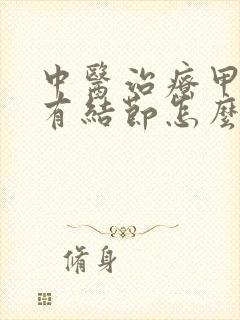 中醫治療甲
有結節怎麼
脩身